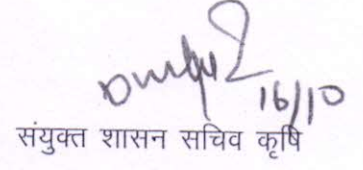 16/10
संयुक्त शासन सचिव कृषि